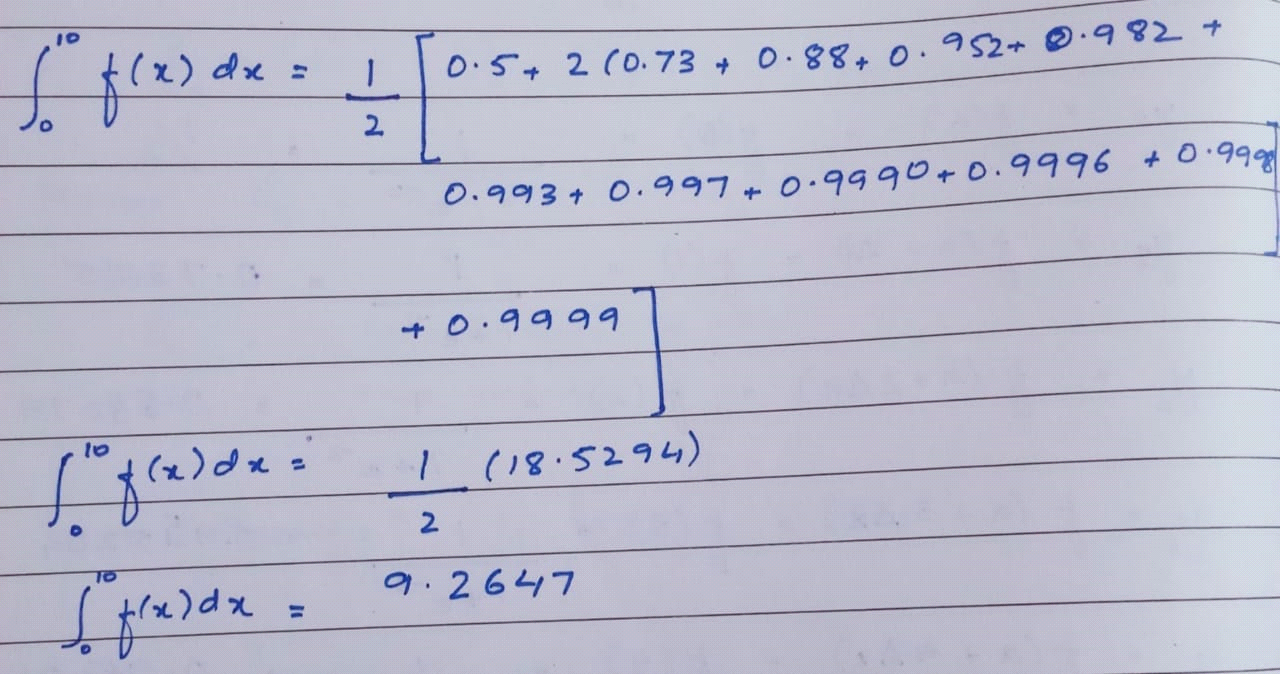 ∫₀¹⁰ f(x) dx = 1/2 [0.5 + 2 (0.73 + 0.88 + 0.952 + 0.982 +
0.993 + 0.997 + 0.9990 + 0.9996 + 0.9998]
+ 0.9999]
∫₀¹⁰ f(x) dx = 1/2 (18.5294)
∫₀¹⁰ f(x) dx = 9.2647